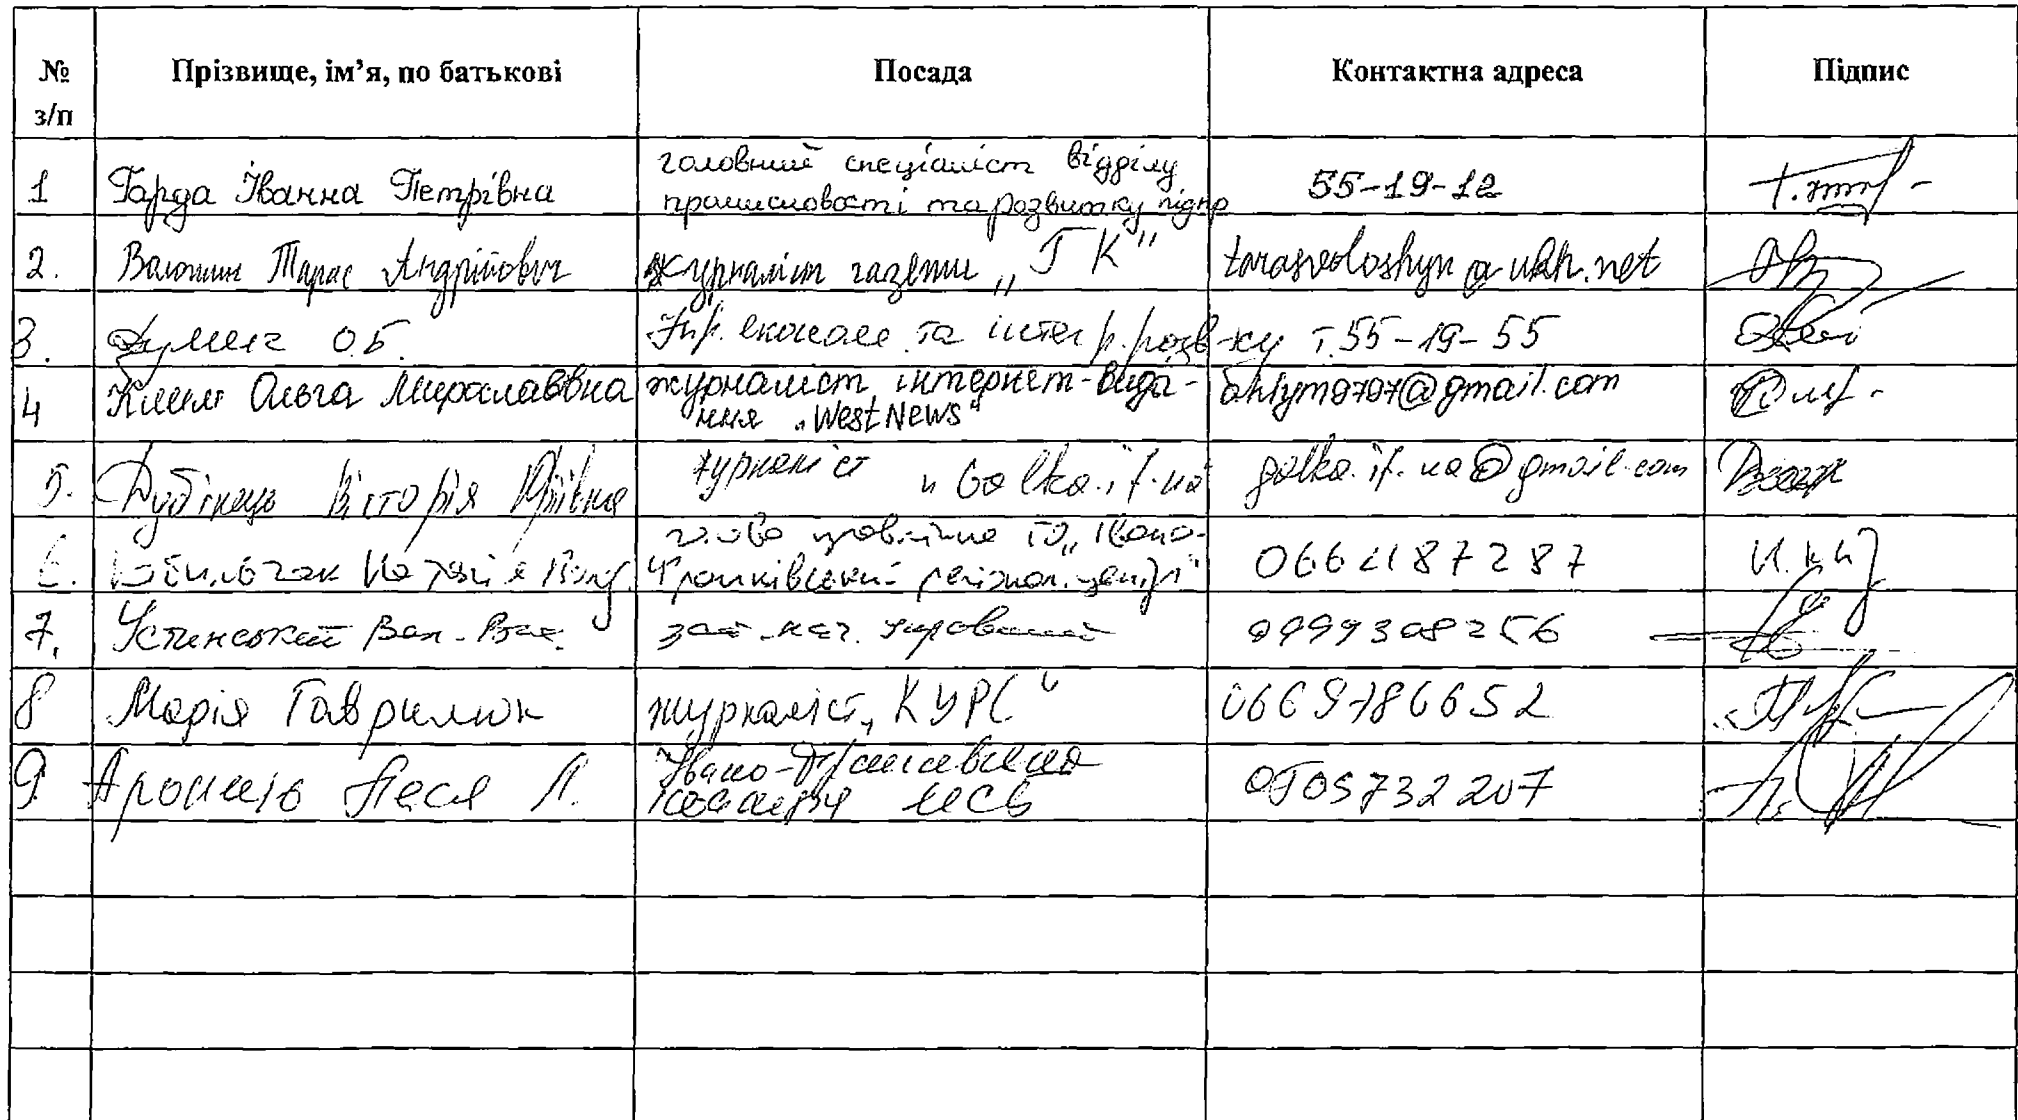 № з/п Прізвище, ім’я, по батькові Посада Контактна адреса Підпис
1 Гарда Іванна Петрівна головний спеціаліст відділу 55-19-12
промисловості та розвитку підпр
2. Волошин Тарас Андрійович журналіст газети „ГК" tarasvoloshyn@ukr.net
3. О.Б. Упр. економ. та інтегр. розв-ку т. 55-19-55
4 Клим Ольга Мирославівна журналіст інтернет-вида- oklym9797@gmail.com
ння „WestNews"
5. Дубінець Вікторія Юріївна журналіст „Galka.if.ua galka.if.ua@gmail.com
6. Наталія голова правління ГО „Івано-
Франківський регіонал. центр"
7. Устинський Вал. Вас. зас. нач. управління
8 Марія Гаврилюк журналіст „КУРС" 0669786652
9 Леся Л. Івано-Франківська 0505732207